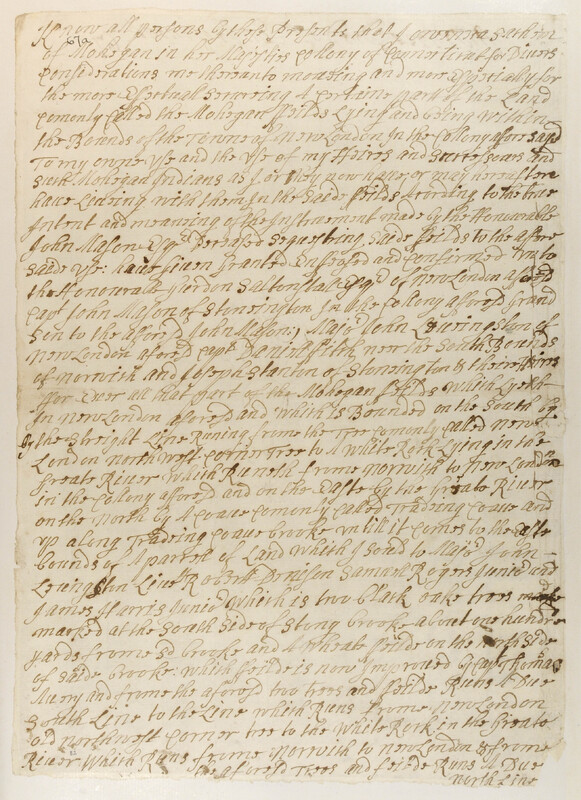 Know all persons by these Presents that I owaneca Sachem
of Mohegan in her Majesties Colony of Connecticut for Divers
Considerations me thereunto moveing and more Especially for
the more Effectuall secureing A Certaine part of the Land
Comonly Called the Mohegan ffeilds Lying and being within
the Bounds of the Towne of New London In the Collony aforesayd
To my owne Use and the Use of my Heires and Successours and
such Mohegan Indians as I or they now have or may hereafter
have Liveing with them In the Saide feilds According to the true
Intent and meaning of the Instrument made by the Honourable
John Mason Esqr Deceased sequestring Saide ffeilds to the affore
Saide Use: have Given Granted Enfeofed and Confirmed unto
the Honourable Gurdon Saltonstall Esqr of New London afored
Capt John Mason of Stonington In the Colony aforesd Grand
Son to the aforesd John Mason; Majr John Levingston of
New London aforesd Capt Daniell ffitch neer the South Bounds
of norwich and Joseph Stanton of Stonington & their Heires
ffor Ever all that part of the Mohegan ffeilds which Lyeth
In New London aforesd and which Is Bounded on the South by
By the Streight Line Runing from the Tree Comonly Caled new
London north west corner Tree to A White Rock Lying in the
Greate River which Runeth frome norwich to new London
in the Colony aforesd and on the Easte by the Greate River
on the north by A Coave Comonly Called Trading Coave and
up along Trading Coave brooke untill it Comes to the Easte
bounds of A parcell of Land which I sould to Majr John
Levingston Lieut Robert Denison Samuell Rogers Junior and
James Harris Junior which is two black oake trees
marked at the South Side of Stony brooke about one hundred
yards frome sd brooke and A Wheate ffeilde on the north Side
of Saide brooke: which ffeilde is now Improved by Capt Thomas
Avery and frome the aforesd two trees and ffeilde Runs A Due
South Line to the Line which Runs frome New London
old northwest Corner tree to the White Rock in the Greate
River Which Runs frome Norwich to new London & frome
the aforesd Trees and feilde Runs A Due
north Line